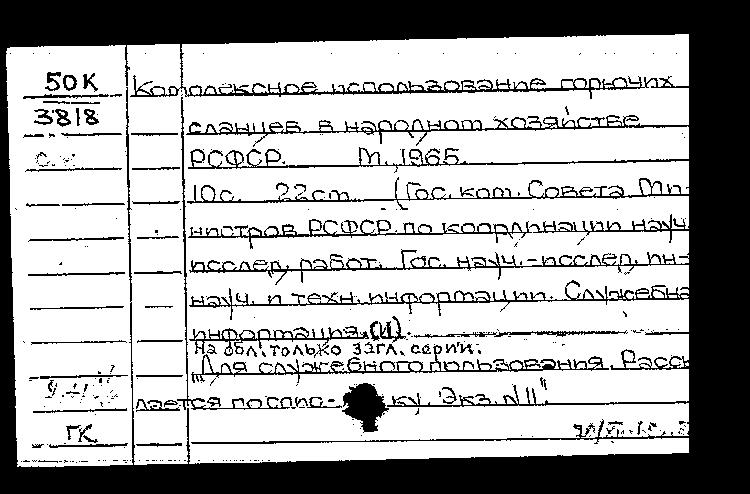 50К
3818
Комплексное использование горючих
сланцев в народном хозяйстве
РСФСР. М., 1965.
10с. 22см. (Гос. ком. Совета Ми-
нистров РСФСР по координации науч.
исслед. работ. Гос. науч.-исслед. ин-
науч. и техн. информации. Служебна
информация. (1).
На обл. только загл. серии.
"Для служебного пользования. Рассы
лается по спис- ку. Экз. №11".
ГК